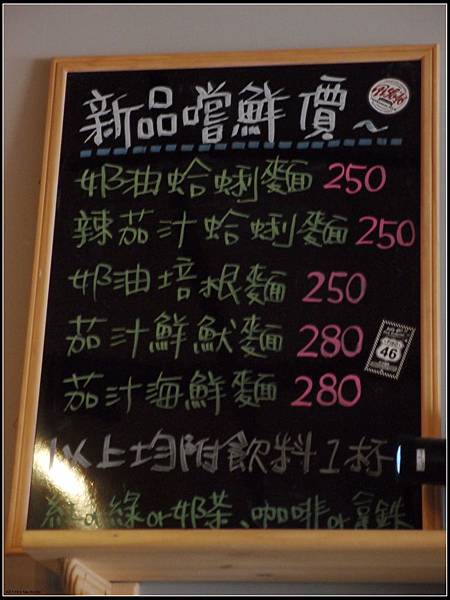 新品嚐鮮價～
奶油蛤蜊麵 250
辣茄汁蛤蜊麵 250
奶油培根麵 250
茄汁鮮魷麵 280
茄汁海鮮麵 280
46
以上均附飲料1杯
紅or綠or奶茶、咖啡or拿鉄